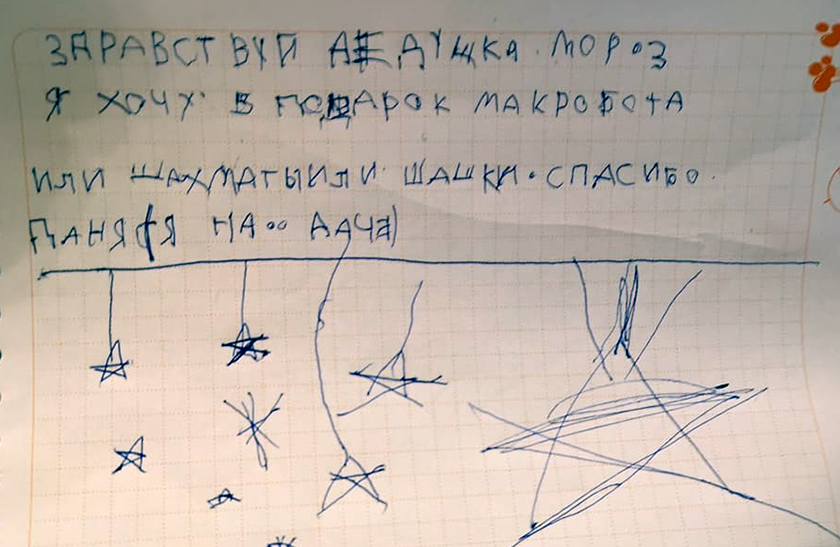 ЗДРАВСТВУЙ ДЕДУШКА МОРОЗ
Я ХОЧУ В ПОДАРОК МАКРОБОТА
ИЛИ ШАХМАТЫ ИЛИ ШАШКИ. СПАСИБО.
ДАНЯ (Я НА ДАЧЕ)